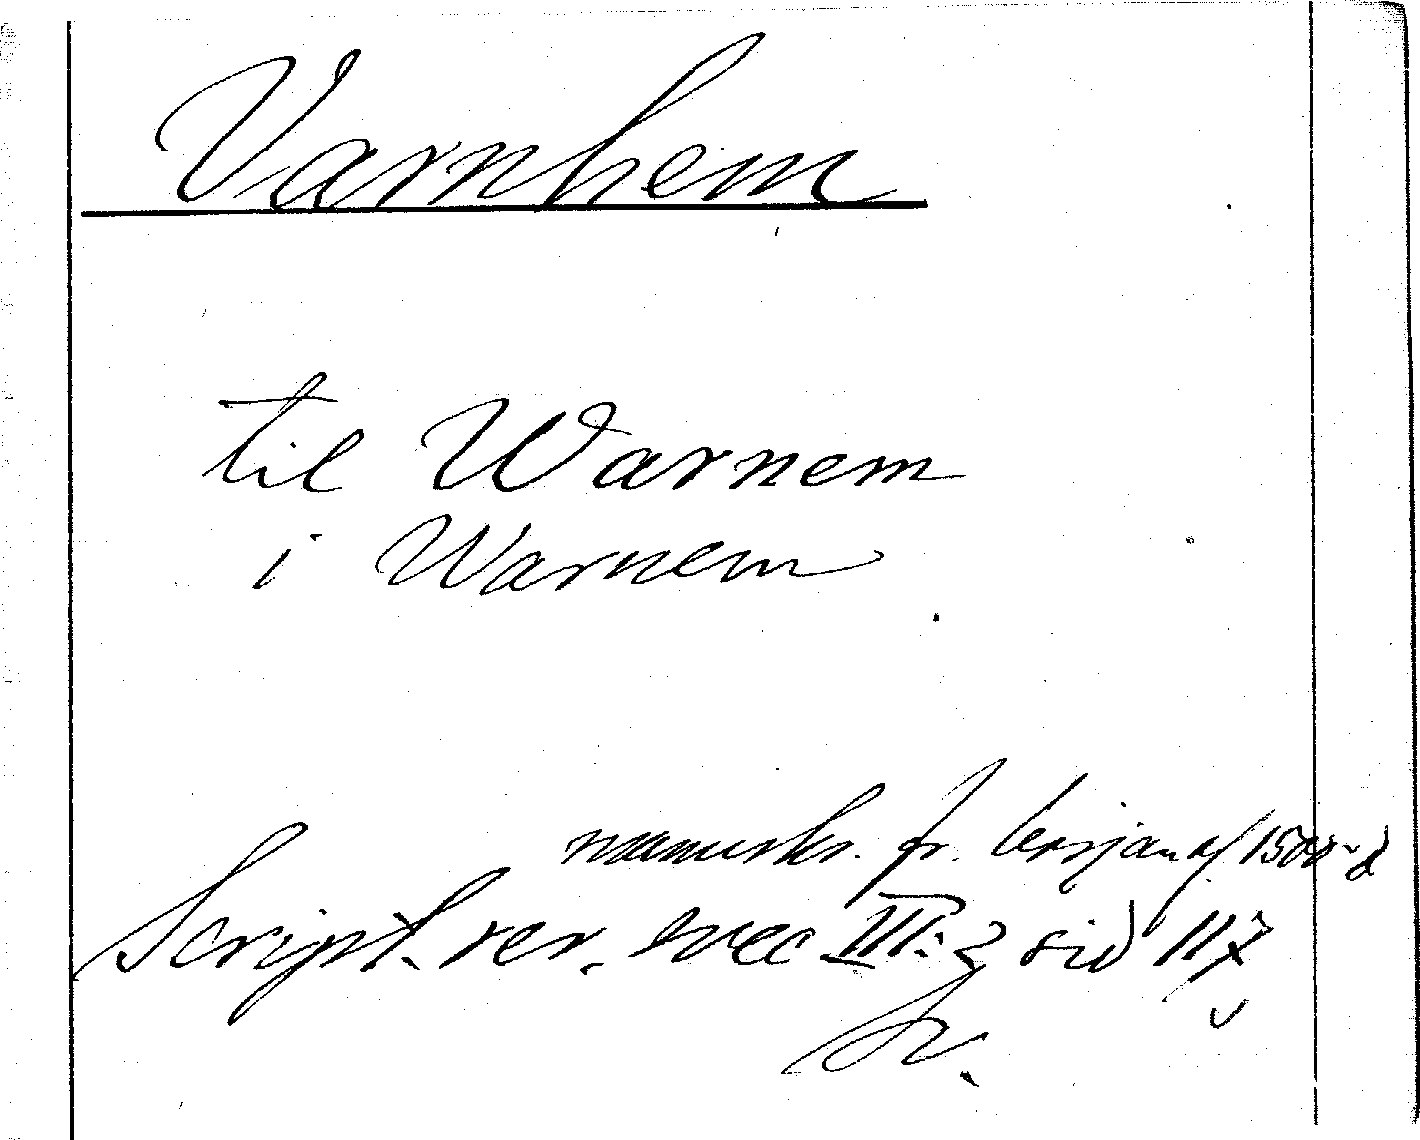 Varnhem
til Warnem
i Warnem
manuskr. fr. början af 1500-t
Script. rer. svec III: 2 sid 117
Sv.